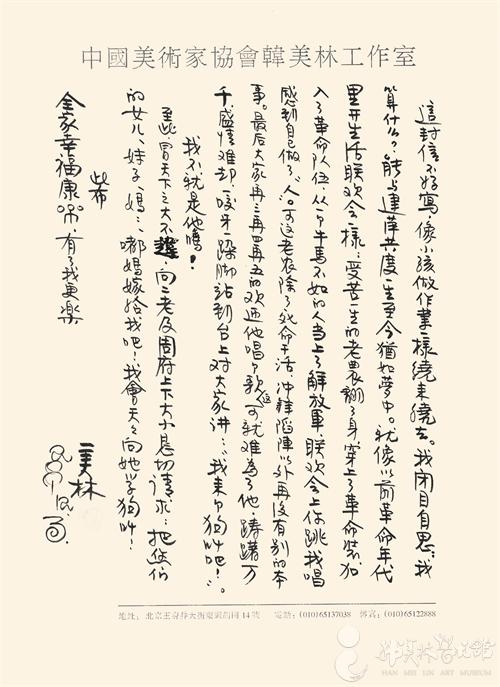 中國美術家協會韓美林工作室
這封信不好寫,像小孩做作業一樣繞來繞去。我閉目自思:我
算什么?能与建萍共度一生至今猶如夢中。就像以前革命年代
里开生活联欢会一樣:受苦一生的老農翻了身穿上了革命装加
入了革命队伍,从个牛馬不如的人当上了解放軍。联欢会上你跳我唱
感到自己做了"人"。可这老农除了死命干活,冲鋒陷陣以外再没有别的本
事。最后大家再三再四再五的欢迎他唱个歌,這可就难為了他,躊躇万
千,盛情难却,咬牙一跺脚站到台上对大家讲:"我来个狗叫吧!"。
我不就是他嗎!
至此,冒天下之大不韪,向二老及周府上下大小恳切请求:把您们
的女儿、妹子、媽……嫁给我吧!我會天天向她学狗叫……
此布
全家幸福康樂,有了我更樂
美林
地址: 北京王府井大街東廠胡同14號 電話:(010)65137038 傳真:(010)65122888
韩美林艺术馆
HAN MEI LIN ART MUSEUM